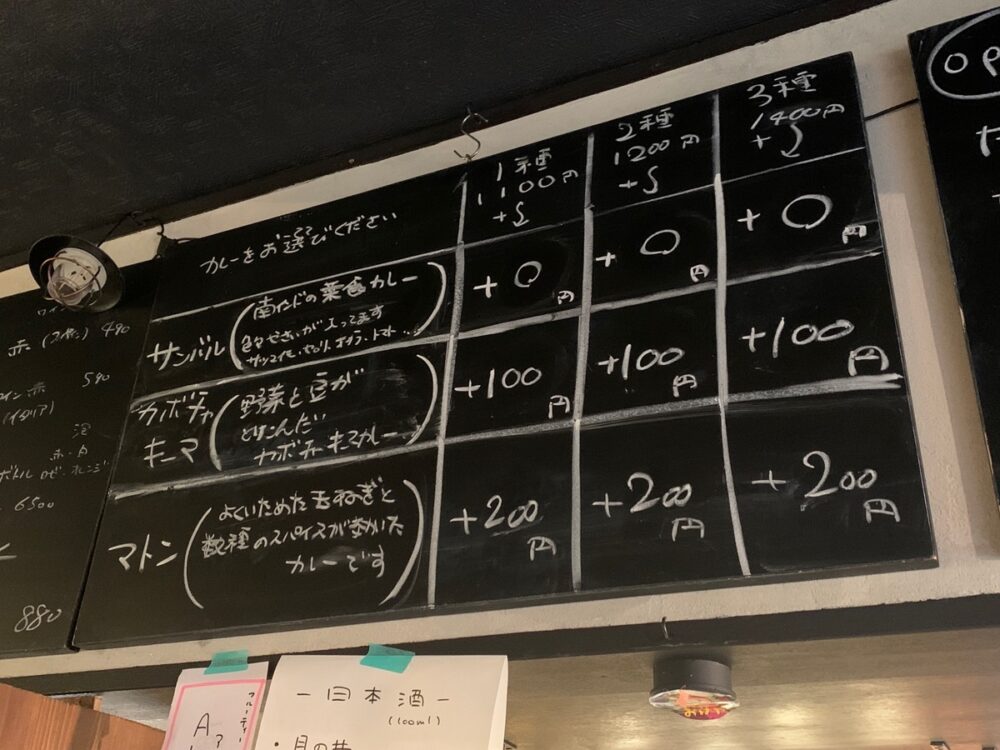 カレーをお選びください
1種
1100円
+
2種
1200円
+
3種
1400円
+
サンバル
南インドの菜食カレー
色々やさいが入ってます
+0円
+0円
+0円
カボチャ
キーマ
野菜と豆が
とけこんだ
カボチャキーマカレー
+100円
+100円
+100円
マトン
よくいためた玉ねぎと
数種のスパイスが効いた
カレーです
+200円
+200円
+200円
赤
490
590
(イタリア)
赤・白
ボトル ロゼ・オレンジ
6500
880
OP
フルーティー
ー日本酒ー
(100ml)
・月の井